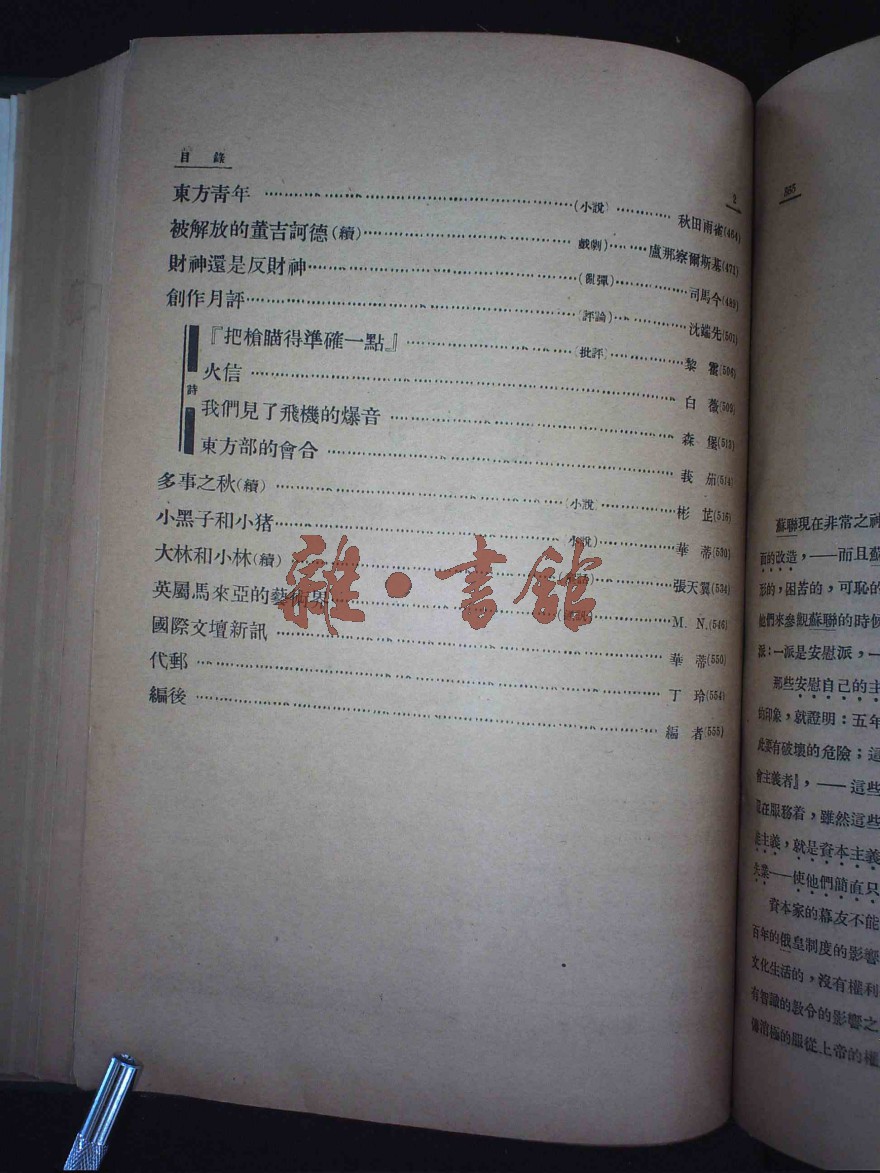 目 錄
2
東方青年 (小說) 秋田雨雀(464)
被解放的董吉訶德(續) 戲劇) 盧那察爾斯基(471)
財神還是反財神 (亂彈) 司馬今(489)
創作月評 (評論) 沈端先(501)
『把槍瞄得準確一點』 (批評) 黎 (506)
詩
火信 白 薇(509)
我們見了飛機的爆音 森 堡(513)
東方部的會合 莪 茄(514)
多事之秋(續) 小說 彬 芷(516)
小黑子和小猪 小說) 華 蒂(530)
大林和小林(續) 張天翼(534)
英屬馬來亞的藝術界 M. N.(546)
國際文壇新訊 華 蒂(550)
代郵 丁 玲(554)
編後 編 者(555)
雜·書館
385
蘇聯現在非常之
面的改造，——而且蘇
形的，困苦的，可恥的
他們來參觀蘇聯的時候
派：一派是安慰派，一
那些安慰自己的主
的印象，就證明：五年
此要有破壞的危險；這
會主義者』，——這些
現在服務着，雖然這些
主義，就是資本主義
失業——使他們簡直只
資本家的幕友不能
百年的俄皇制度的影響
文化生活的，沒有權利
有智識的教令的影響之
的服從上帝的權